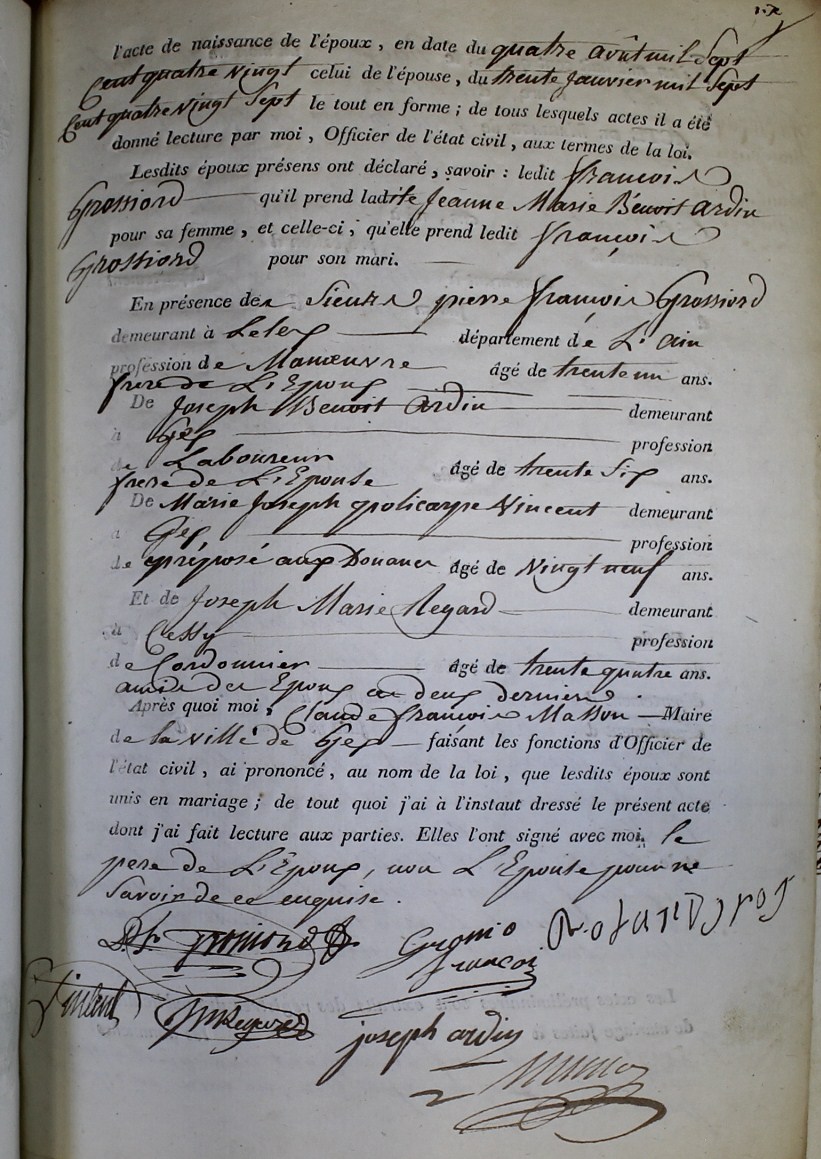 l'acte de naissance de l'époux, en date du quatre août mil Sept
Cent quatre Vingt celui de l'épouse, du trente Janvier mil Sept
Cent quatre Vingt Sept le tout en forme ; de tous lesquels actes il a été
donné lecture par moi, Officier de l'état civil, aux termes de la loi.
Lesdits époux présens ont déclaré, savoir : ledit françois
Grossiord qu'il prend ladite Jeanne Marie Benoit ardin
pour sa femme, et celle-ci, qu'elle prend ledit françois
Grossiord pour son mari.
En présence de Sieurs pierre françois Grossiord
demeurant à Lelex département de L'ain
profession de Manœuvre âgé de trente un ans.
frere de L'Epoux
De Joseph Benoit Ardin demeurant
à Gex profession
de Laboureur âgé de trente Six ans.
frere de L'Epouse
De Marie Joseph policarpe Vincent demeurant
à Gex profession
de préposé aux Douanes âgé de Vingt neuf ans.
Et de Joseph Marie Regard demeurant
à Cessy profession
de Cordonnier âgé de trente quatre ans.
amis des Epoux deux derniers.
Après quoi moi, Claude françois Matton Maire
de la Ville de Gex faisant les fonctions d'Officier de
l'état civil, ai prononcé, au nom de la loi, que lesdits époux sont
unis en mariage ; de tout quoi j'ai à l'instaut dressé le présent acte
dont j'ai fait lecture aux parties. Elles l'ont signé avec moi, le
pere de L'Epoux, non L'Epouse pour ne
Savoir de ce enquise.
françoi
Vincent
JM Regard
joseph ardin